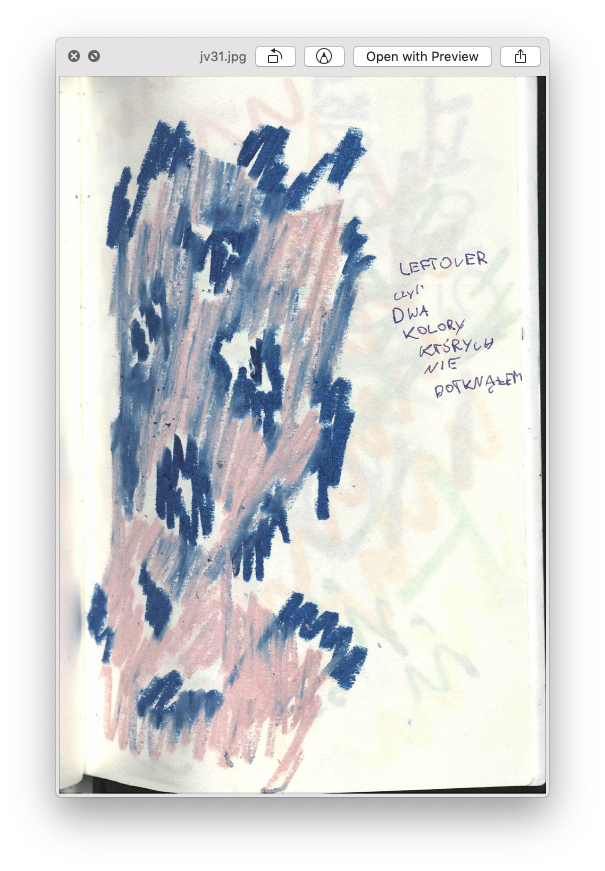 jv31.jpg
Open with Preview
LEFTOVER
czyli
DWA
KOLORY
KTÓRYCH
NIE
DOTKNĄŁEM